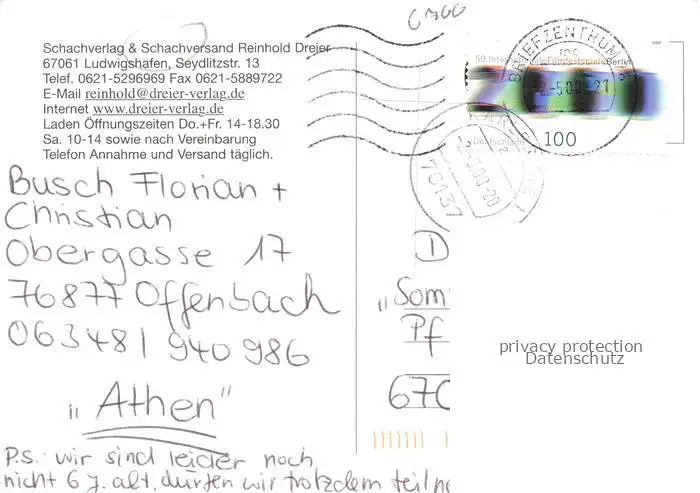 6700
Schachverlag & Schachversand Reinhold Dreier
67061 Ludwigshafen, Seydlitzstr. 13
Telef. 0621-5296969 Fax 0621-5889722
E-Mail reinhold@dreier-verlag.de
Internet www.dreier-verlag.de
Laden Öffnungszeiten Do.+Fr. 14-18.30
Sa. 10-14 sowie nach Vereinbarung
Telefon Annahme und Versand täglich.
Busch Florian +
Christian
Obergasse 17
76877 Offenbach
06348 / 940 986
"Athen"
P.S.: wir sind leider noch
nicht 6 J. alt, dürfen wir trotzdem teiln
50. Internationale Filmfestspiele Berlin
Deutschland
100
BRIEFZENTRUM
76137
D
"Som
Pf
670
privacy protection
Datenschutz